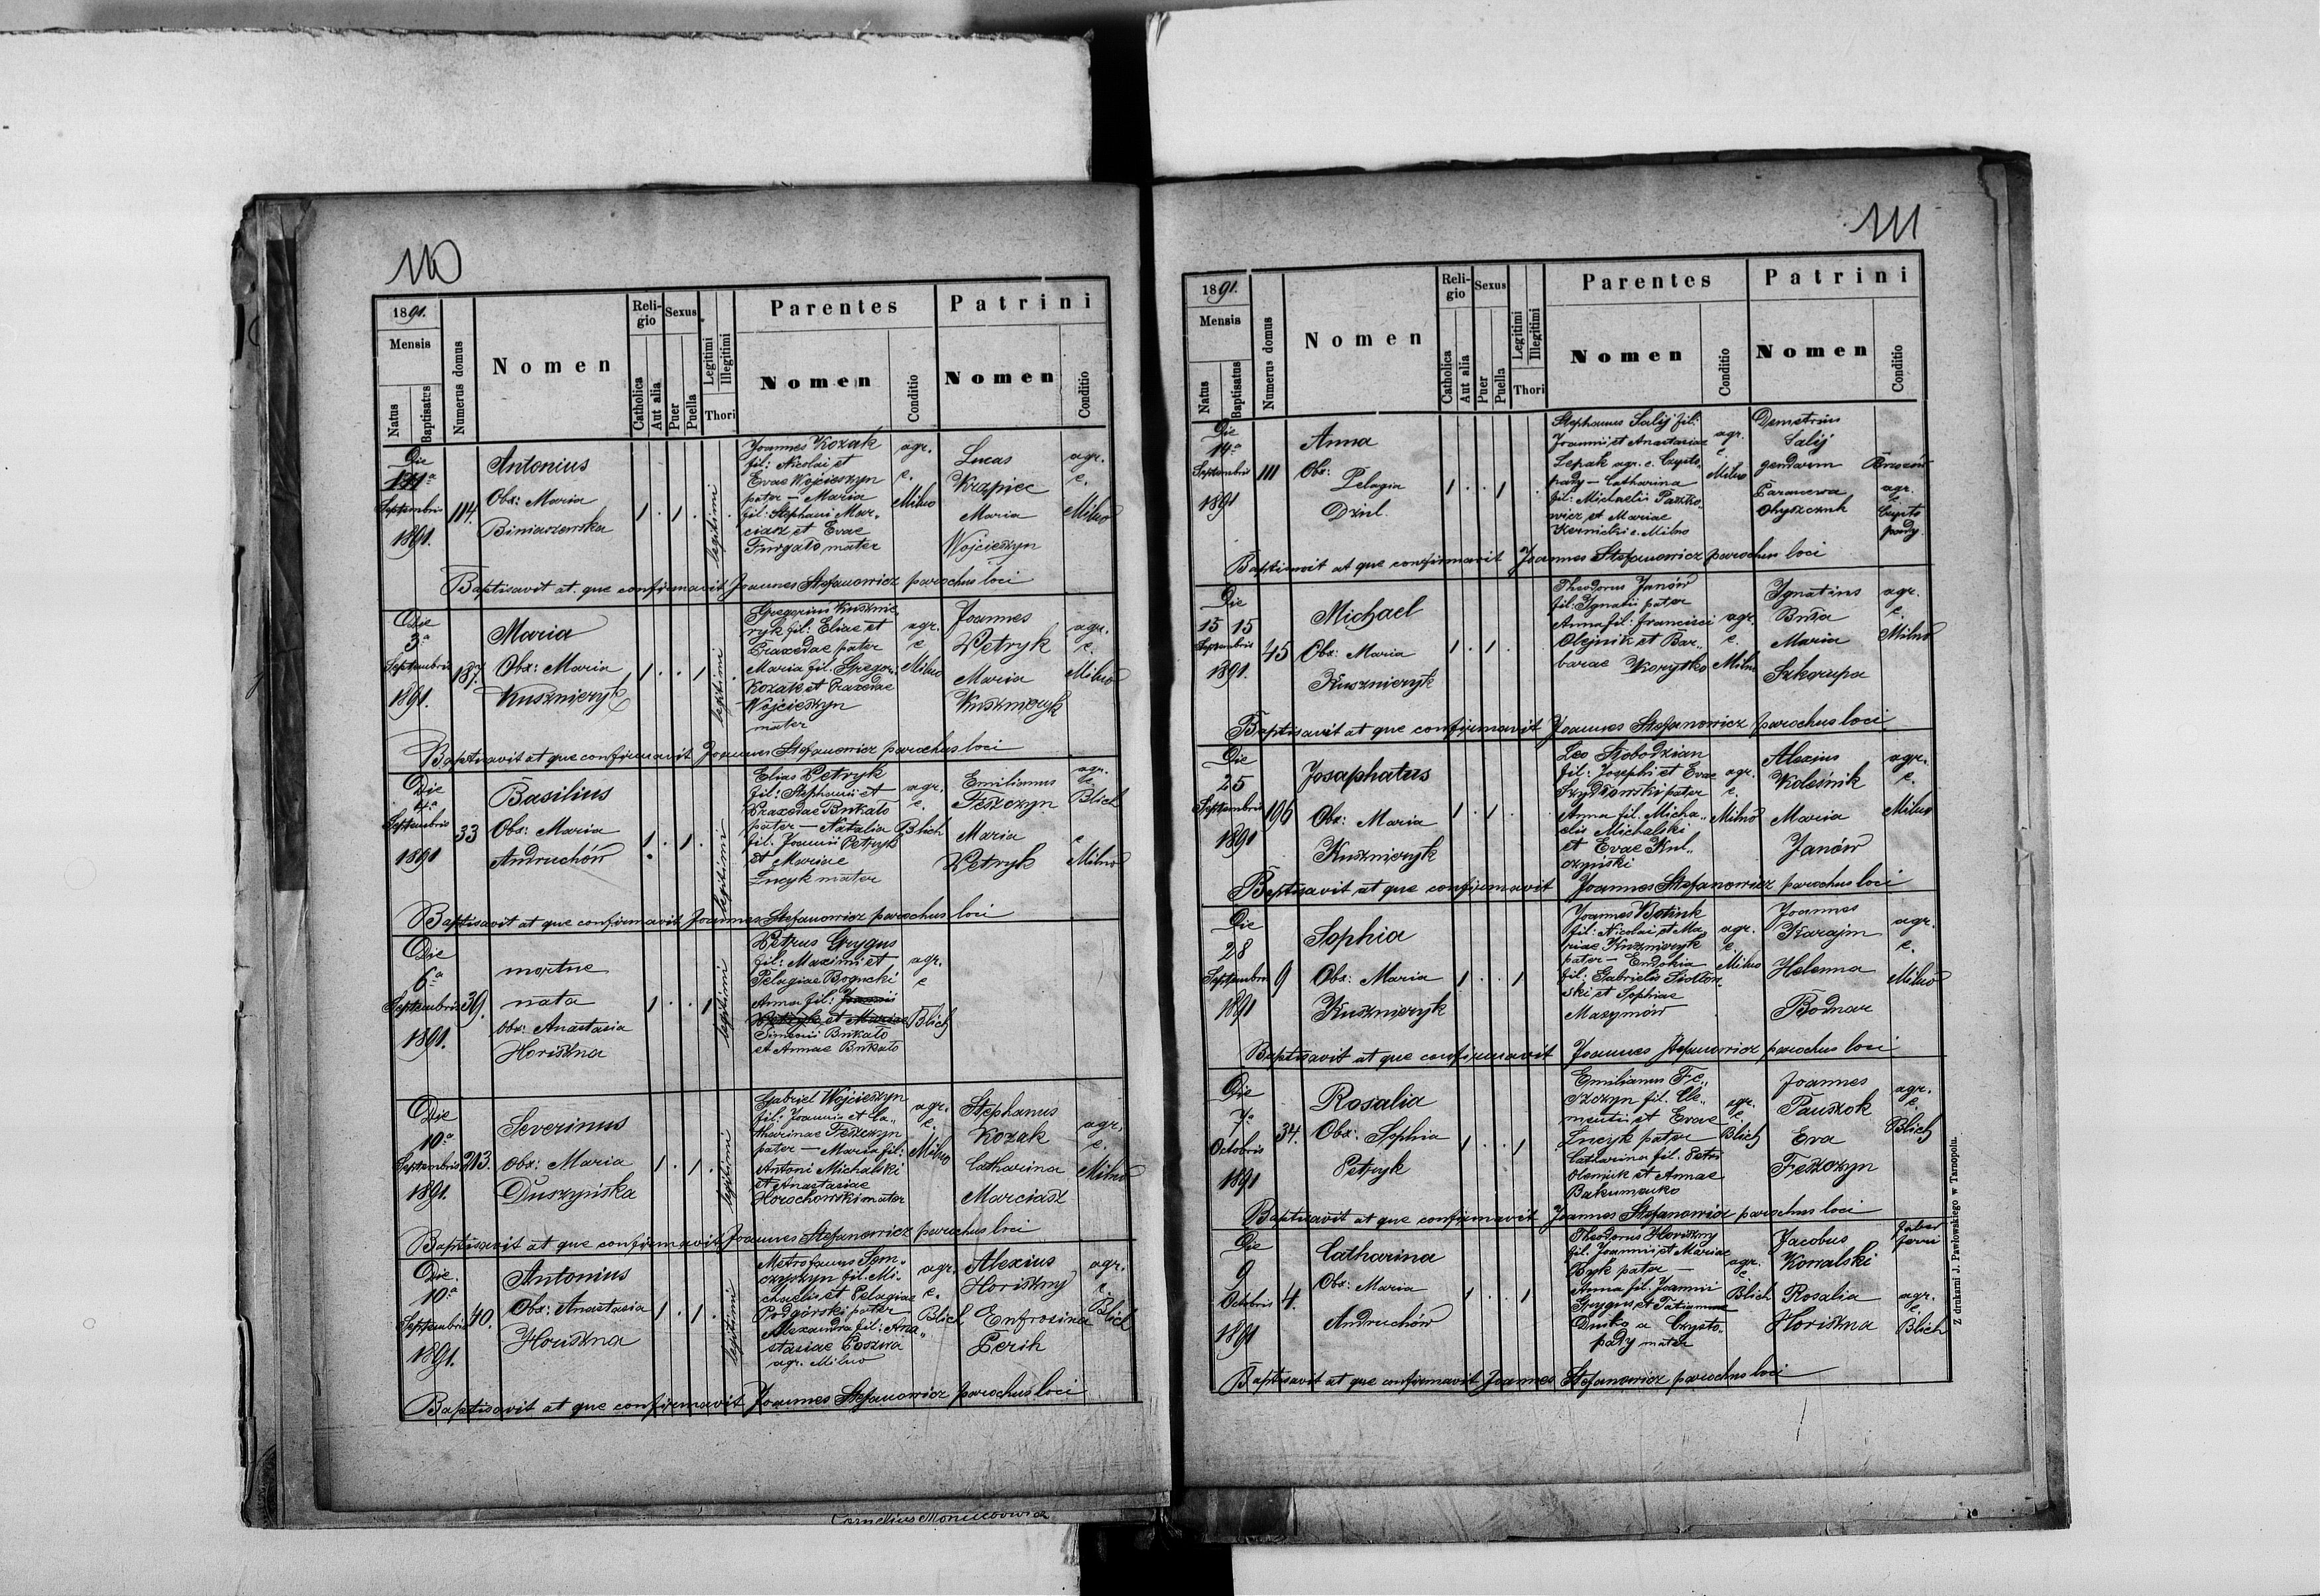 110
1891.
Mensis
Natus
Baptisatus
Numerus domus
Nomen
Religio
Catholica
Aut alia
Sexus
Puer
Puella
Legitimi
Illegitimi
Thori
Parentes
Nomen
Conditio
Patrini
Nomen
Conditio
Die
Septembris
1891.
114.
Antonius
Obx: Maria
Biniaszewska
1 . 1 .
legitimi
Joannes Kozak
fil: Nicolai et
Evae Wojcieszyn
pater — Maria
fil: Stephani Mar-
ciasz et Evae
Furgało mater
agr.
c.
Milno
Lucas
Krapiec
Maria
Wojcieszyn
agr.
c.
Milno
Baptisavit at que confirmavit Joannes Stefanowicz parochus loci
Die
3a
Septembris
1891.
187.
Maria
Obx: Maria
Kusznieryk
1 . . 1
legitimi
Gregorius Kusznie
ryk fil: Eliae et
Praxedae pater
Maria fil: Gregor:
Kozak et Praxedae
Wojcieszyn
mater
agr.
c
Milno
Joannes
Petryk
Maria
Kusznieryk
agr.
c.
Milno
Baptisavit at que confirmavit Joannes Stefanowicz parochus loci
Die
4a
Septembris
1891
33
Basilius
Obx: Maria
Andruchów
1 . 1 .
legitimi
Elias Petryk
fil: Stephani et
Praxedae Bukało
pater — Natalia
fil: Joannii Petryk
et Mariae
Łucyk mater
agr.
c.
Blich
Emilianus
Feszczyn
Maria
Petryk
agr.
c
Blich
c
Milno
Baptisavit at que confirmavit Joannes Stefanowicz parochus loci
Die
6a
Septembris
1891.
39.
mortue
nata
obx: Anastasia
Horiszna
1 . . 1
legitimi
Petrus Grygus
fil: Maximi et
Pelagiae Bogucki
Anna fil: Joannii
Petryk et Mariae
Simeonii Bukało
et Annae Bukało
agr.
c
Blich
Die
10a
Septembris
1891.
213.
Severinus
Obx: Maria
Duszyńska
1 . 1 .
legitimi
Gabriel Wojcieszyn
fil: Joannis et Ca-
tharinae Feszczyn
pater — Maria fil:
Antoni Michalski
et Anastasiae
Horochowski mater
agr.
c.
Milno
Stephanus
Kozak
Catharina
Marciasz
agr.
c.
Milno
Baptisavit at que confirmavit Joannes Stefanowicz parochus loci
Die
10a
Septembris
1891.
40.
Antonius
Obx: Anastasia
Horiszna
1 . 1 .
legitimi
Metrofanus Sem-
czyszyn fil: Mi-
chaelis et Pelagiae
Podgórski pater
Alexandra fil: Ana-
stasiae Poszwa
agr. Milno
agr.
c.
Blich
Alexius
Horiszny
Eufrosina
Perih
agr.
c.
Blich
Baptisavit at que confirmavit Joannes Stefanowicz parochus loci
Cornelius
111
1891.
Mensis
Natus
Baptisatus
Numerus domus
Nomen
Religio
Catholica
Aut alia
Sexus
Puer
Puella
Legitimi
Illegitimi
Thori
Parentes
Nomen
Conditio
Patrini
Nomen
Conditio
Die
14a
Septembris
1891
111
Anna
Obx:
Pelagia
Dziul.
1 . . 1
Stephanus Salij fil:
Joannii et Anastasiae
Lepak agr. c. Czysto-
pady — Catharina
fil: Michaelis Paszko-
wicz et Mariae
Kernicki c. Milno
agr.
c.
Milno
Demetrius
Salij
gendarm
Paranewa
Ohyszczuk
agr.
c.
Czysto
pady
Baptisavit at que confirmavit Joannes Stefanowicz parochus loci
Die
15 15
Septembris
1891.
45
Michael
Obx: Maria
Kusznieryk
1 . 1 .
Theodorus Janów
fil: Ignatii pater
Anna fil: Francisci
Olejnik et Bar-
barae Korytko
agr.
c.
Milno
Ignatius
Buła
Maria
Szkarupa
agr.
c.
Milno
Baptisavit at que confirmavit Joannes Stefanowicz parochus loci
Die
25
Septembris
1891
196
Josaphatus
Obx: Maria
Kusznieryk
1 . 1 .
Leo Słobodzian
fil: Josephi et Evae
Szydłowski pater
Anna fil: Micha-
elis Michalski
et Evae Kul-
czyński
agr.
c.
Milno
Alexius
Koleśnik
Maria
Janów
agr.
c.
Milno
Baptisavit at que confirmavit Joannes Stefanowicz parochus loci
Die
28
Septembris
1891
9
Sophia
Obx: Maria
Kusznieryk
1 . . 1
Joannes Botiuk
fil: Nicolai et Ma
riae Kusznieryk
pater — Eudokia
fil: Gabrielis Siotłow
ski et Sophiae
Mazymów
agr.
c.
Milno
Joannes
Karajm
Helenna
Bodnar
agr.
c.
Milno
Baptisavit at que confirmavit Joannes Stefanowicz parochus loci
Die
7a
Octobris
1891
34.
Rosalia
Obx: Sophia
Petryk
1 . . 1
Emilianus Fe-
szczyn fil: Cle-
mentii et Evae
Łucyk pater
Catharina fil: Petri
Oleniuk et Annae
Bakumenko
agr.
c.
Blich
Joannes
Pauszok
Eva
Feszczyn
agr.
c.
Blich
Baptisavit at que confirmavit Joannes Stefanowicz parochus loci
Die
9
Octobris
1891
4.
Catharina
Obx: Maria
Andruchów
1 . . 1
Theodorus Horiszny
fil: Joannii et Mariae
Byk pater —
Anna fil: Joannii
Grygus et Tatiannae
Dusko a Czysto-
pady mater
agr.
c.
Blich
Jacobus
Kowalski
Rosalia
Horiszna
faber
ferri
agr.
c.
Blich
Baptisavit at que confirmavit Joannes Stefanowicz parochus loci
Z drukarni J. Pawłowskiego w Tarnopolu.